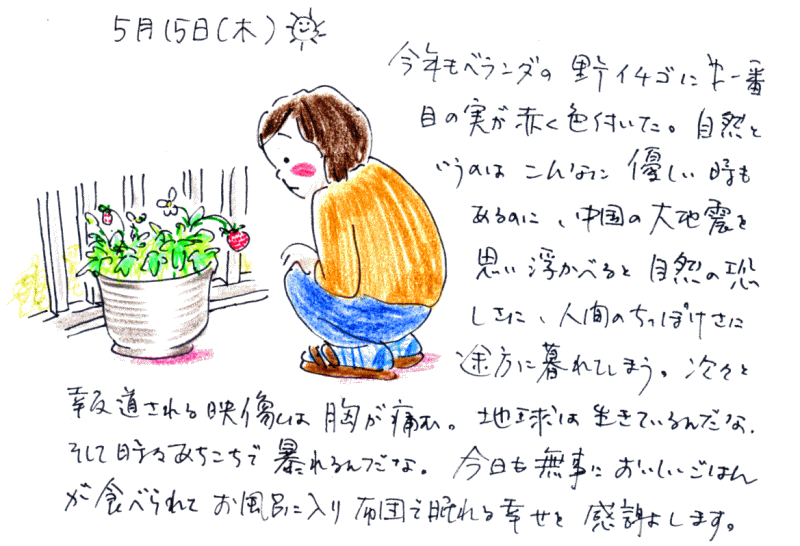 5月15日(木)
今年もベランダの野イチゴに一番
目の実が赤く色付いた。自然と
いうのはこんなに優しい時も
あるのに、中国の大地震を
思い浮かべると自然の恐
しさに、人間のちっぽけさに
途方に暮れてしまう。次々と
報道される映像は胸が痛む。地球は生きているんだな、
そして時々あちこちで暴れるんだな。今日も無事においしいごはん
が食べられてお風呂に入り布団で眠れる幸せを感謝します。